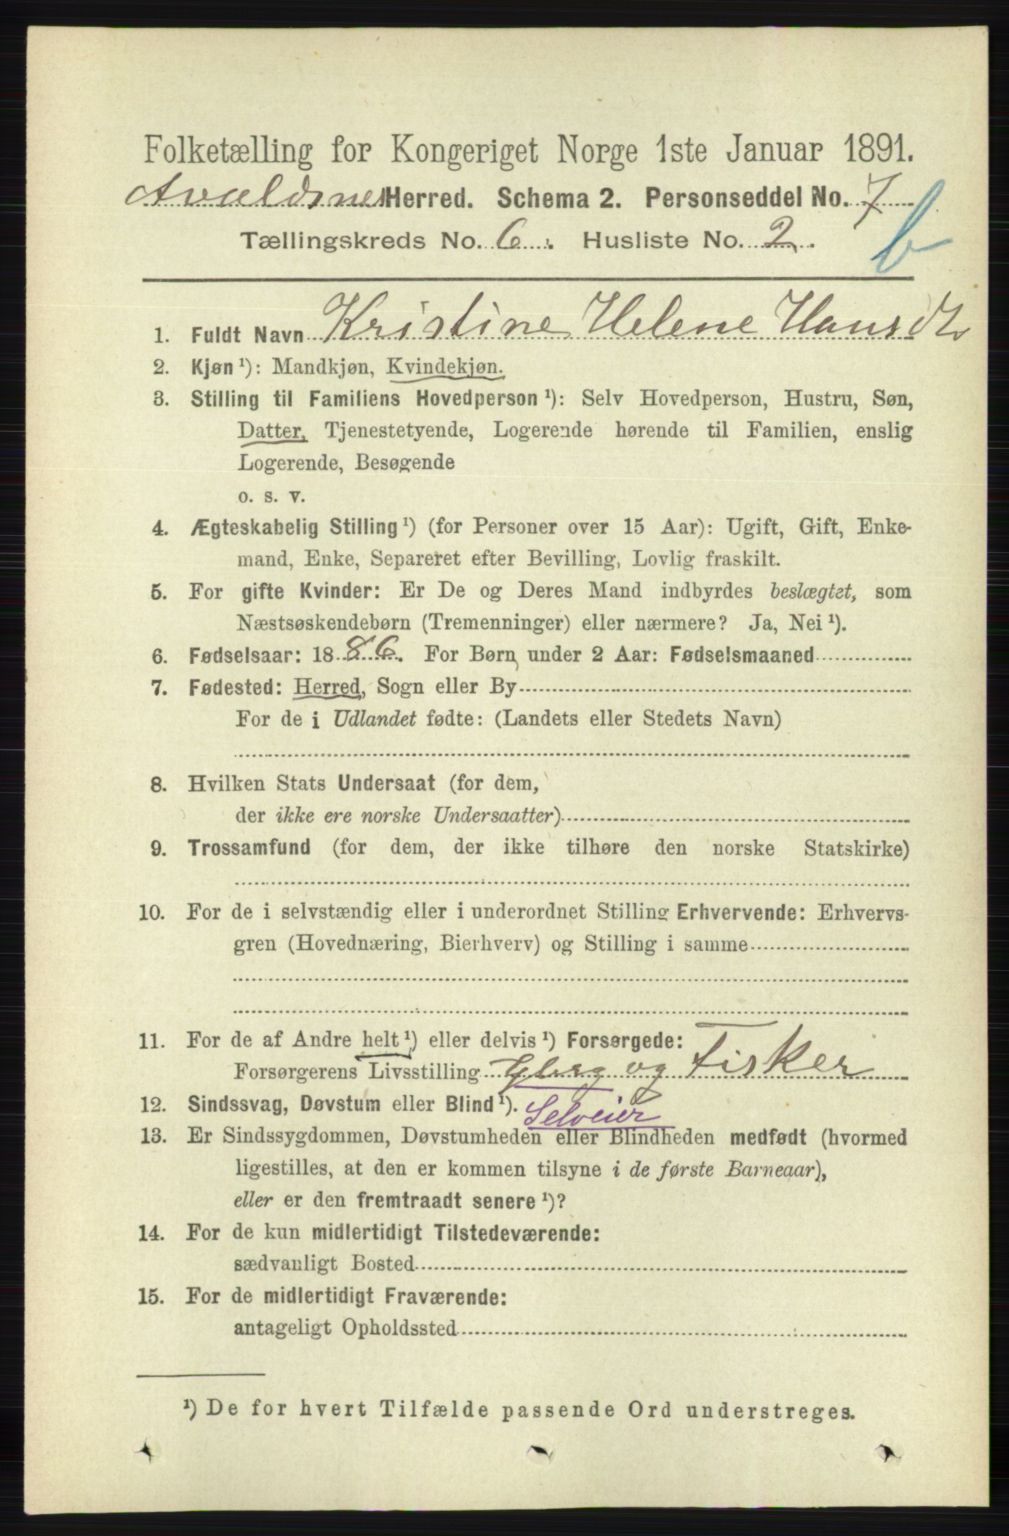 Folketælling for Kongeriget Norge 1ste Januar 1891.
Avaldsnes Herred. Schema 2. Personseddel No. 7
Tællingskreds No. 6. Husliste No. 2.
b
1. Fuldt Navn Kristine Helene Hansdtr
2. Kjøn ¹): Mandkjøn, Kvindekjøn.
3. Stilling til Familiens Hovedperson ¹): Selv Hovedperson, Hustru, Søn,
Datter, Tjenestetyende, Logerende hørende til Familien, enslig
Logerende, Besøgende
o. s. v.
4. Ægteskabelig Stilling ¹) (for Personer over 15 Aar): Ugift, Gift, Enke-
mand, Enke, Separeret efter Bevilling, Lovlig fraskilt.
5. For gifte Kvinder: Er De og Deres Mand indbyrdes beslægtet, som
Næstsøskendebørn (Tremenninger) eller nærmere? Ja, Nei ¹).
6. Fødselsaar: 1886. For Børn under 2 Aar: Fødselsmaaned
7. Fødested: Herred, Sogn eller By
For de i Udlandet fødte: (Landets eller Stedets Navn)
8. Hvilken Stats Undersaat (for dem,
der ikke ere norske Undersaatter)
9. Trossamfund (for dem, der ikke tilhøre den norske Statskirke)
10. For de i selvstændig eller i underordnet Stilling Erhvervende: Erhvervs-
gren (Hovednæring, Bierhverv) og Stilling i samme
11. For de af Andre helt ¹) eller delvis ¹) Forsørgede:
Forsørgerens Livsstilling og Fisker
12. Sindssvag, Døvstum eller Blind ¹). Selveier
13. Er Sindssygdommen, Døvstumheden eller Blindheden medfødt (hvormed
ligestilles, at den er kommen tilsyne i de første Barneaar),
eller er den fremtraadt senere ¹)?
14. For de kun midlertidigt Tilstedeværende:
sædvanligt Bosted
15. For de midlertidigt Fraværende:
antageligt Opholdssted
¹) De for hvert Tilfælde passende Ord understreges.